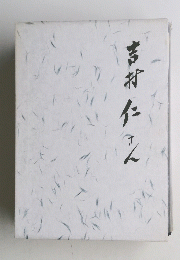 吉村 仁さん